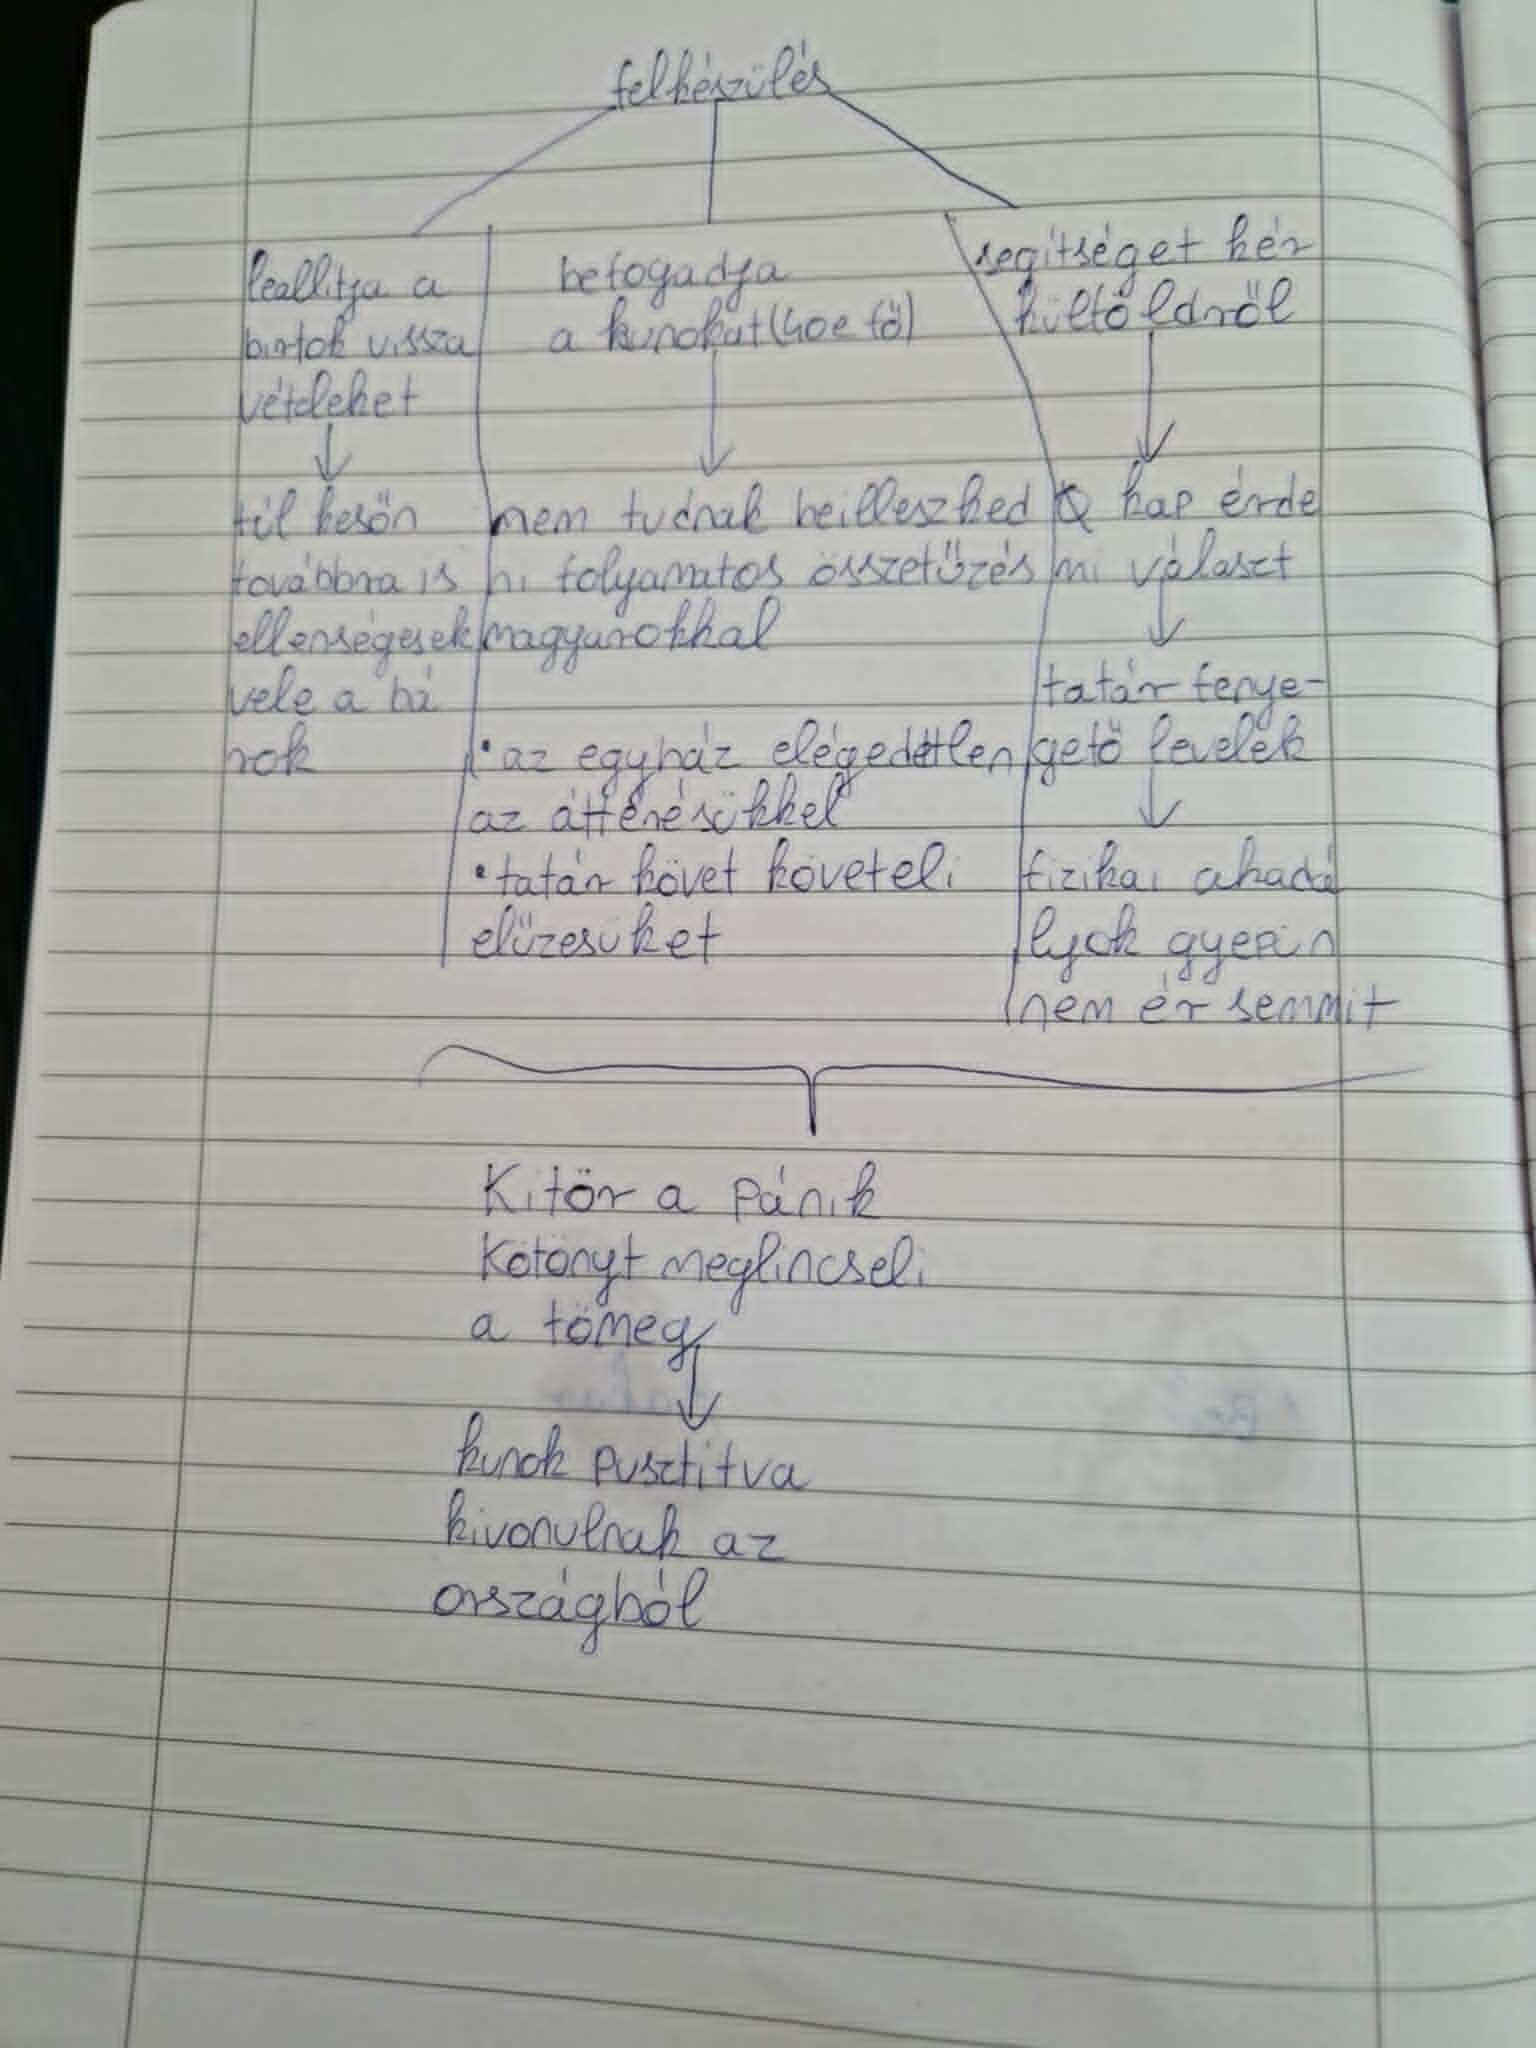 felkészülés
leallitja a
birtok vissza
vételeket
túl későn
továbbra is
ellenségesek
vele a bá
rok
befogadja
a kunokat (40e fő)
nem tudnak beilleszked
ni folyamatos összetűzés
magyarokkal
• az egyház elégedetlen
az áttérésükkel
• tatár követ követeli
elűzesüket
segítséget kér
külföldről
kap érde
mi választ
tatár fenye-
gető levelek
fizikai akadá
lyok gyepün
nem ér semmit
Kitör a pánik
Kötönyt meglincseli
a tömeg
kunok pusztitva
kivonulnak az
országból